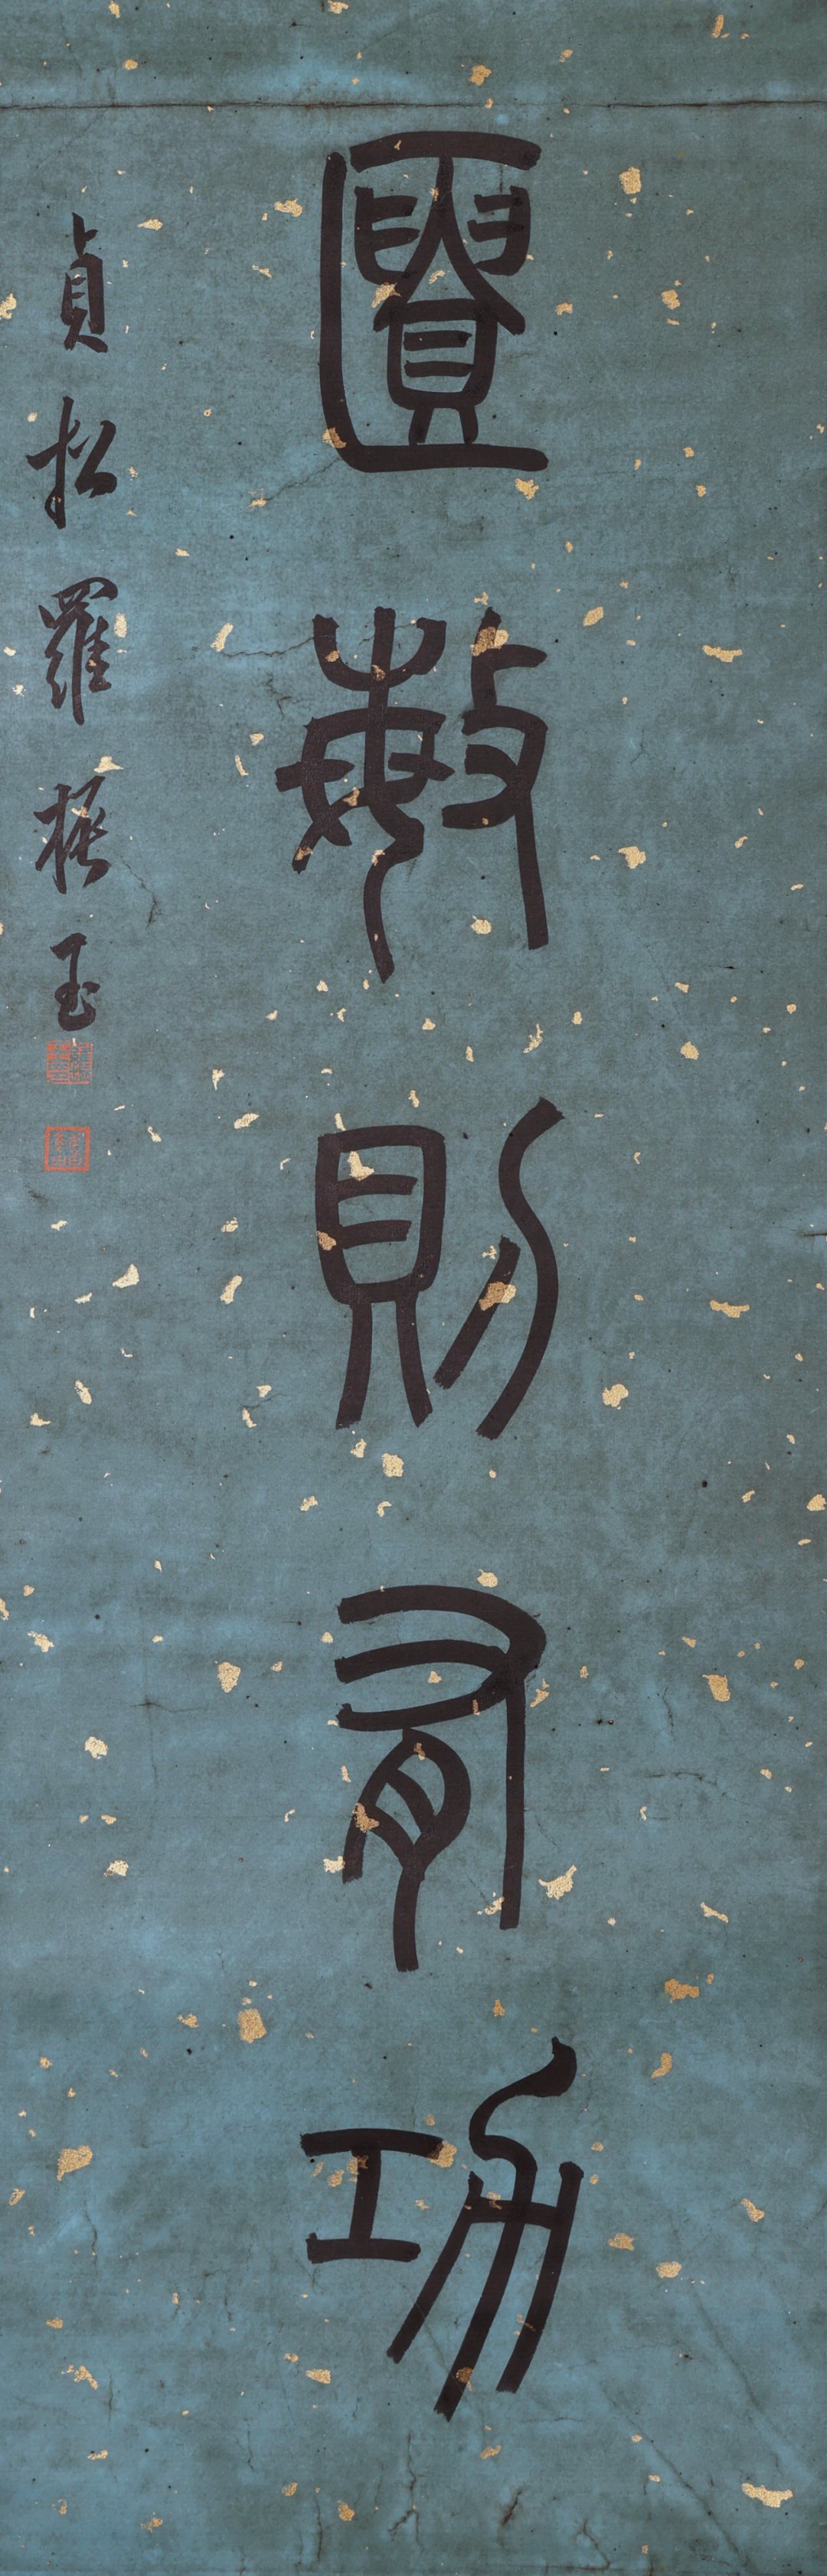 匱敏則有功
貞松羅振玉